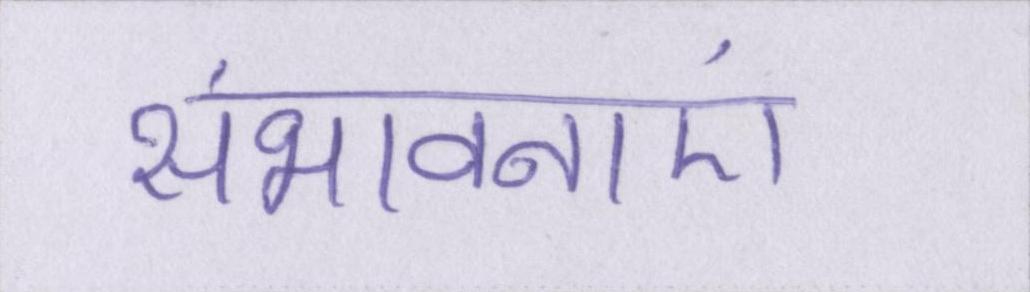 संभावनाएं